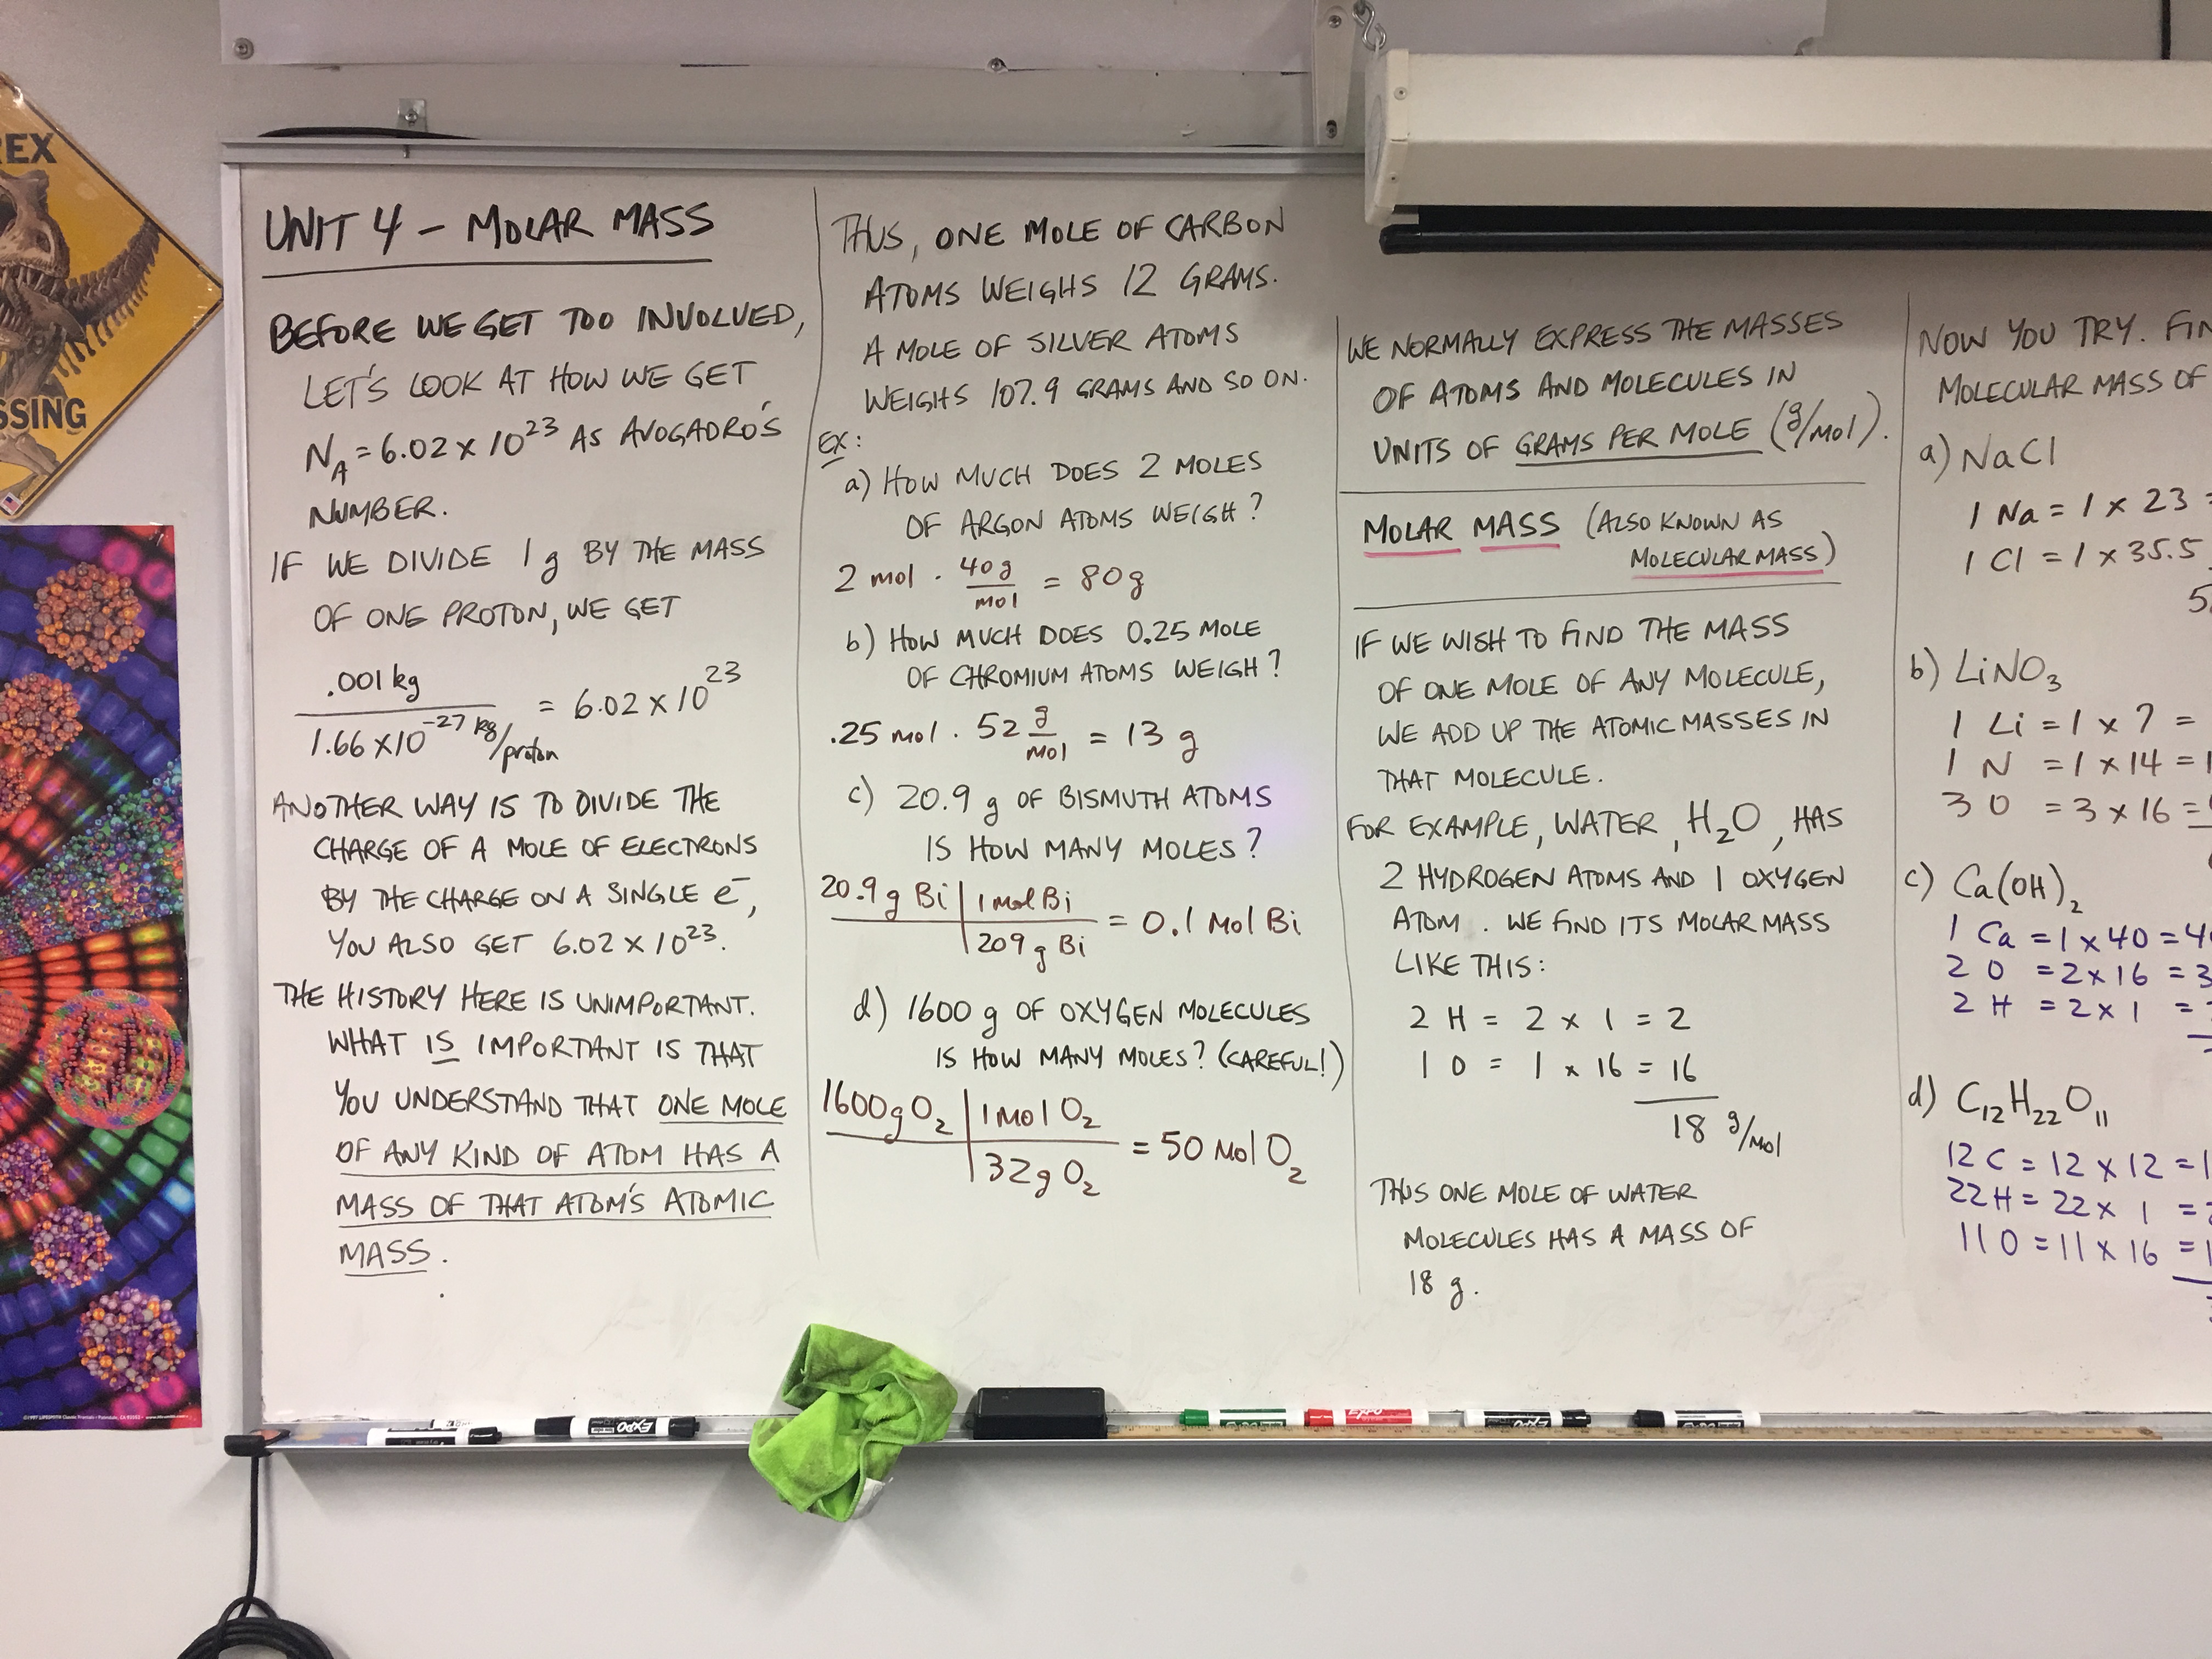 REX
SSING
UNIT 4 – MOLAR MASS
BEFORE WE GET TOO INVOLVED,
LET'S LOOK AT HOW WE GET
N_A = 6.02 x 10^23 AS AVOGADRO'S
NUMBER.
IF WE DIVIDE 1 g BY THE MASS
OF ONE PROTON, WE GET
.001 kg
1.66 x 10^-27 kg/proton = 6.02 x 10^23
ANOTHER WAY IS TO DIVIDE THE
CHARGE OF A MOLE OF ELECTRONS
BY THE CHARGE ON A SINGLE e⁻,
YOU ALSO GET 6.02 x 10^23.
THE HISTORY HERE IS UNIMPORTANT.
WHAT IS IMPORTANT IS THAT
YOU UNDERSTAND THAT ONE MOLE
OF ANY KIND OF ATOM HAS A
MASS OF THAT ATOM'S ATOMIC
MASS.
THUS, ONE MOLE OF CARBON
ATOMS WEIGHS 12 GRAMS.
A MOLE OF SILVER ATOMS
WEIGHS 107.9 GRAMS AND SO ON.
EX:
a) HOW MUCH DOES 2 MOLES
OF ARGON ATOMS WEIGH?
2 mol · 40g/mol = 80g
b) HOW MUCH DOES 0.25 MOLE
OF CHROMIUM ATOMS WEIGH?
.25 mol · 52 g/mol = 13 g
c) 20.9 g OF BISMUTH ATOMS
IS HOW MANY MOLES?
20.9 g Bi | 1 mol Bi
209 g Bi = 0.1 Mol Bi
d) 1600 g OF OXYGEN MOLECULES
IS HOW MANY MOLES? (CAREFUL!)
1600g O₂ | 1 Mol O₂
32g O₂ = 50 Mol O₂
WE NORMALLY EXPRESS THE MASSES
OF ATOMS AND MOLECULES IN
UNITS OF GRAMS PER MOLE (g/mol).
MOLAR MASS (ALSO KNOWN AS
MOLECULAR MASS)
IF WE WISH TO FIND THE MASS
OF ONE MOLE OF ANY MOLECULE,
WE ADD UP THE ATOMIC MASSES IN
THAT MOLECULE.
FOR EXAMPLE, WATER, H₂O, HAS
2 HYDROGEN ATOMS AND 1 OXYGEN
ATOM. WE FIND ITS MOLAR MASS
LIKE THIS:
2 H = 2 x 1 = 2
1 O = 1 x 16 = 16
18 g/mol
THUS ONE MOLE OF WATER
MOLECULES HAS A MASS OF
18 g.
NOW YOU TRY. FIN
MOLECULAR MASS OF
a) NaCl
1 Na = 1 x 23 =
1 Cl = 1 x 35.5
5
b) LiNO₃
1 Li = 1 x 7 =
1 N = 1 x 14 = 1
3 O = 3 x 16 =
c) Ca(OH)₂
1 Ca = 1 x 40 = 4
2 O = 2 x 16 = 3
2 H = 2 x 1 =
d) C₁₂H₂₂O₁₁
12 C = 12 x 12 = 1
22 H = 22 x 1 = 2
11 O = 11 x 16 = 1
EXPO
EXPO
EXPO